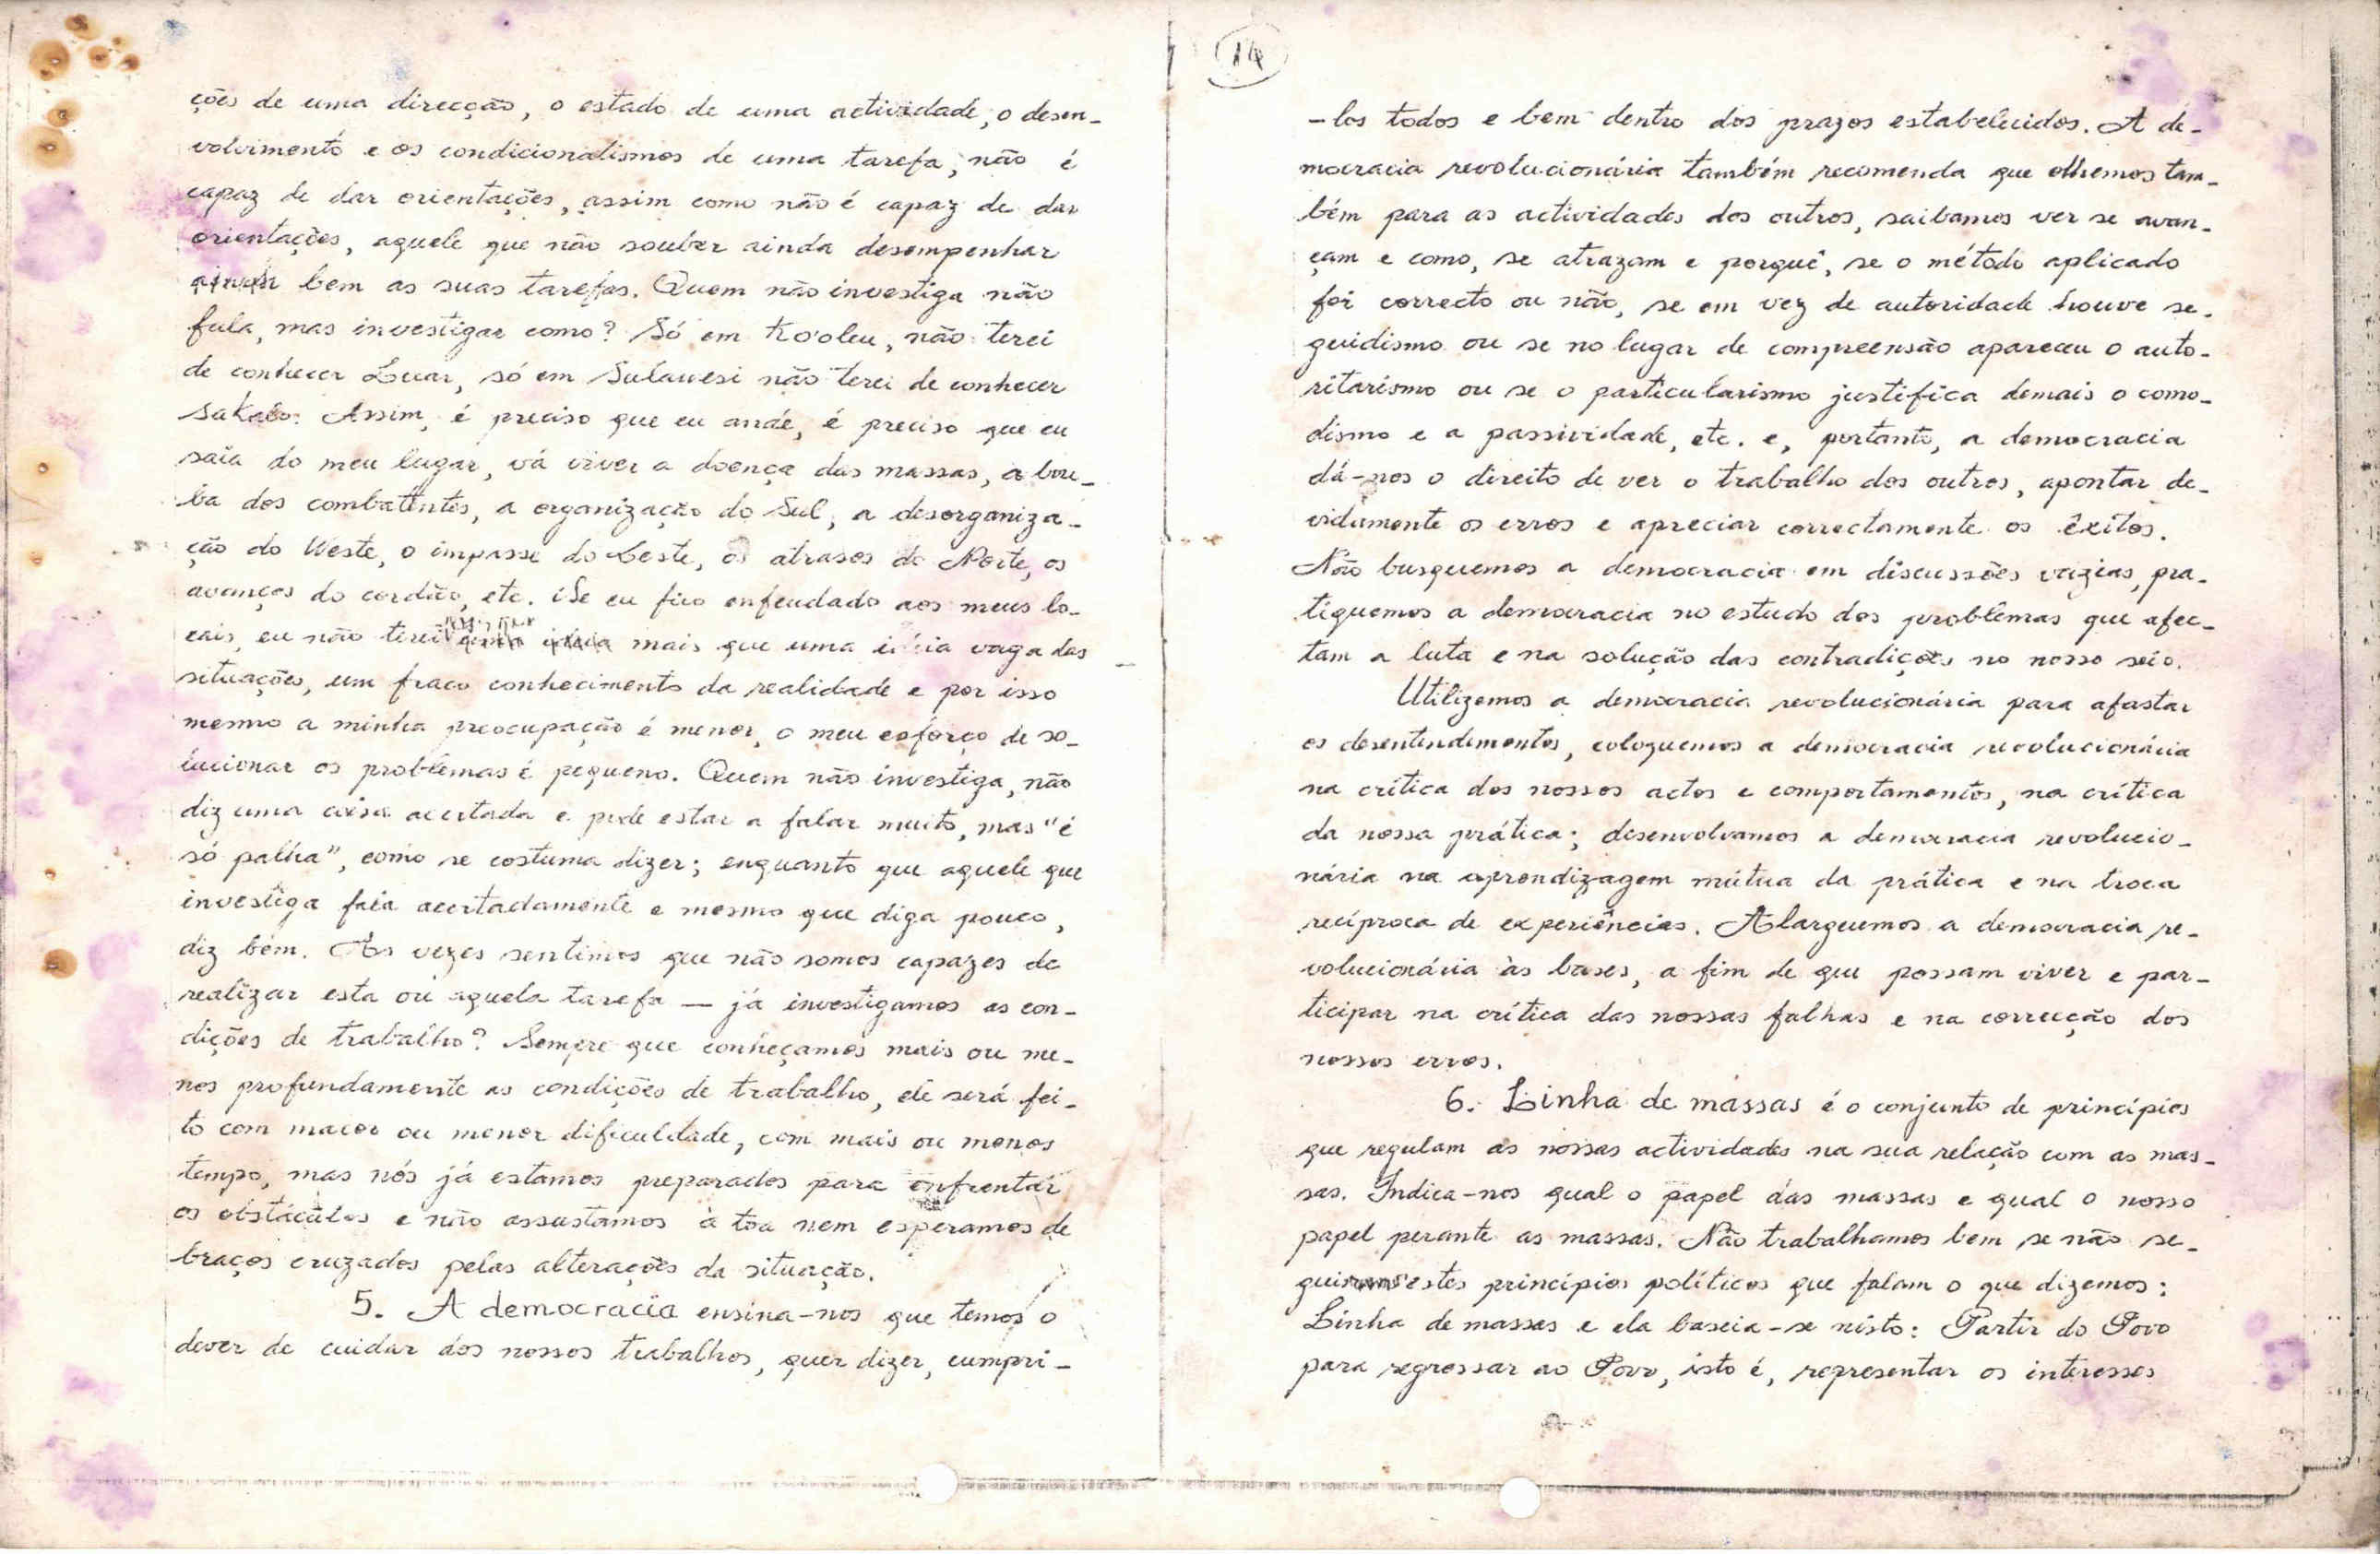 ções de uma direcção, o estado de uma actividade, o desen-
volvimento e os condicionalismos de uma tarefa, não é
capaz de dar orientações, assim como não é capaz de dar
orientações, aquele que não souber ainda desempenhar
bem as suas tarefas. Quem não investiga não
fala, mas investigar como? Só em Ko'oleu, não terei
de conhecer Luar, só em Sulawesi não terei de conhecer
Assim, é preciso que eu ande, é preciso que eu
saia do meu lugar, vá viver a doença das massas, a bou-
ba dos combatentes, a organização do Sul, a desorganiza-
ção do Weste, o impasse do Leste, os atrasos do Norte, os
avanços do cordão, etc. Se eu fico enfeudado aos meus lo-
cais, eu não terei mais que uma ideia vaga das
situações, um fraco conhecimento da realidade e por isso
mesmo a minha preocupação é menor, o meu esforço de so-
lucionar os problemas é pequeno. Quem não investiga, não
diz uma coisa acertada e pode estar a falar muito, mas "é
só palha", como se costuma dizer; enquanto que aquele que
investiga fala acertadamente e mesmo que diga pouco,
diz bem. As vezes sentimos que não somos capazes de
realizar esta ou aquela tarefa — já investigamos as con-
dições de trabalho? Sempre que conheçamos mais ou me-
nos profundamente as condições de trabalho, ele será fei-
to com maior ou menor dificuldade, com mais ou menos
tempo, mas nós já estamos preparados para enfrentar
os obstáculos e não assustamos à toa nem esperamos de
braços cruzados pelas alterações da situação.
5. A democracia ensina-nos que temos o
dever de cuidar dos nossos trabalhos, quer dizer, cumpri-
14
-los todos e bem dentro dos prazos estabelecidos. A de-
mocracia revolucionária também recomenda que olhemos tam-
bém para as actividades dos outros, saibamos ver se avan-
çam e como, se atrazam e porquê, se o método aplicado
foi correcto ou não, se em vez de autoridade houve se-
guidismo ou se no lugar de compreensão apareceu o auto-
ritarismo ou se o particularismo justifica demais o como-
dismo e a passividade, etc. e, portanto, a democracia
dá-nos o direito de ver o trabalho dos outros, apontar de-
vidamente os erros e apreciar correctamente os êxitos.
Não busquemos a democracia em discussões vazias, pra-
tiquemos a democracia no estudo dos problemas que afec-
tam a luta e na solução das contradições no nosso seio.
Utilizemos a democracia revolucionária para afastar
os desentendimentos, coloquemos a democracia revolucionária
na crítica dos nossos actos e comportamentos, na crítica
da nossa prática; desenvolvamos a democracia revolucio-
nária na aprendizagem mútua da prática e na troca
recíproca de experiências. Alarguemos a democracia re-
volucionária às bases, a fim de que possam viver e par-
ticipar na crítica das nossas falhas e na correcção dos
nossos erros.
6. Linha de massas é o conjunto de princípios
que regulam as nossas actividades na sua relação com as mas-
sas. Indica-nos qual o papel das massas e qual o nosso
papel perante as massas. Não trabalhamos bem se não se-
guirmos estes princípios políticos que falam o que dizemos:
Linha de massas e ela baseia-se nisto: Partir do Povo
para regressar ao Povo, isto é, representar os interesses